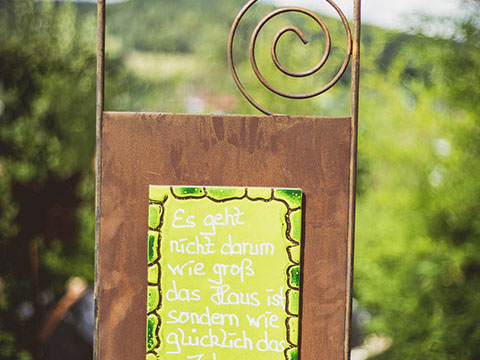 Es geht
nicht darum
wie groß
das Haus ist
sondern wie
glücklich das